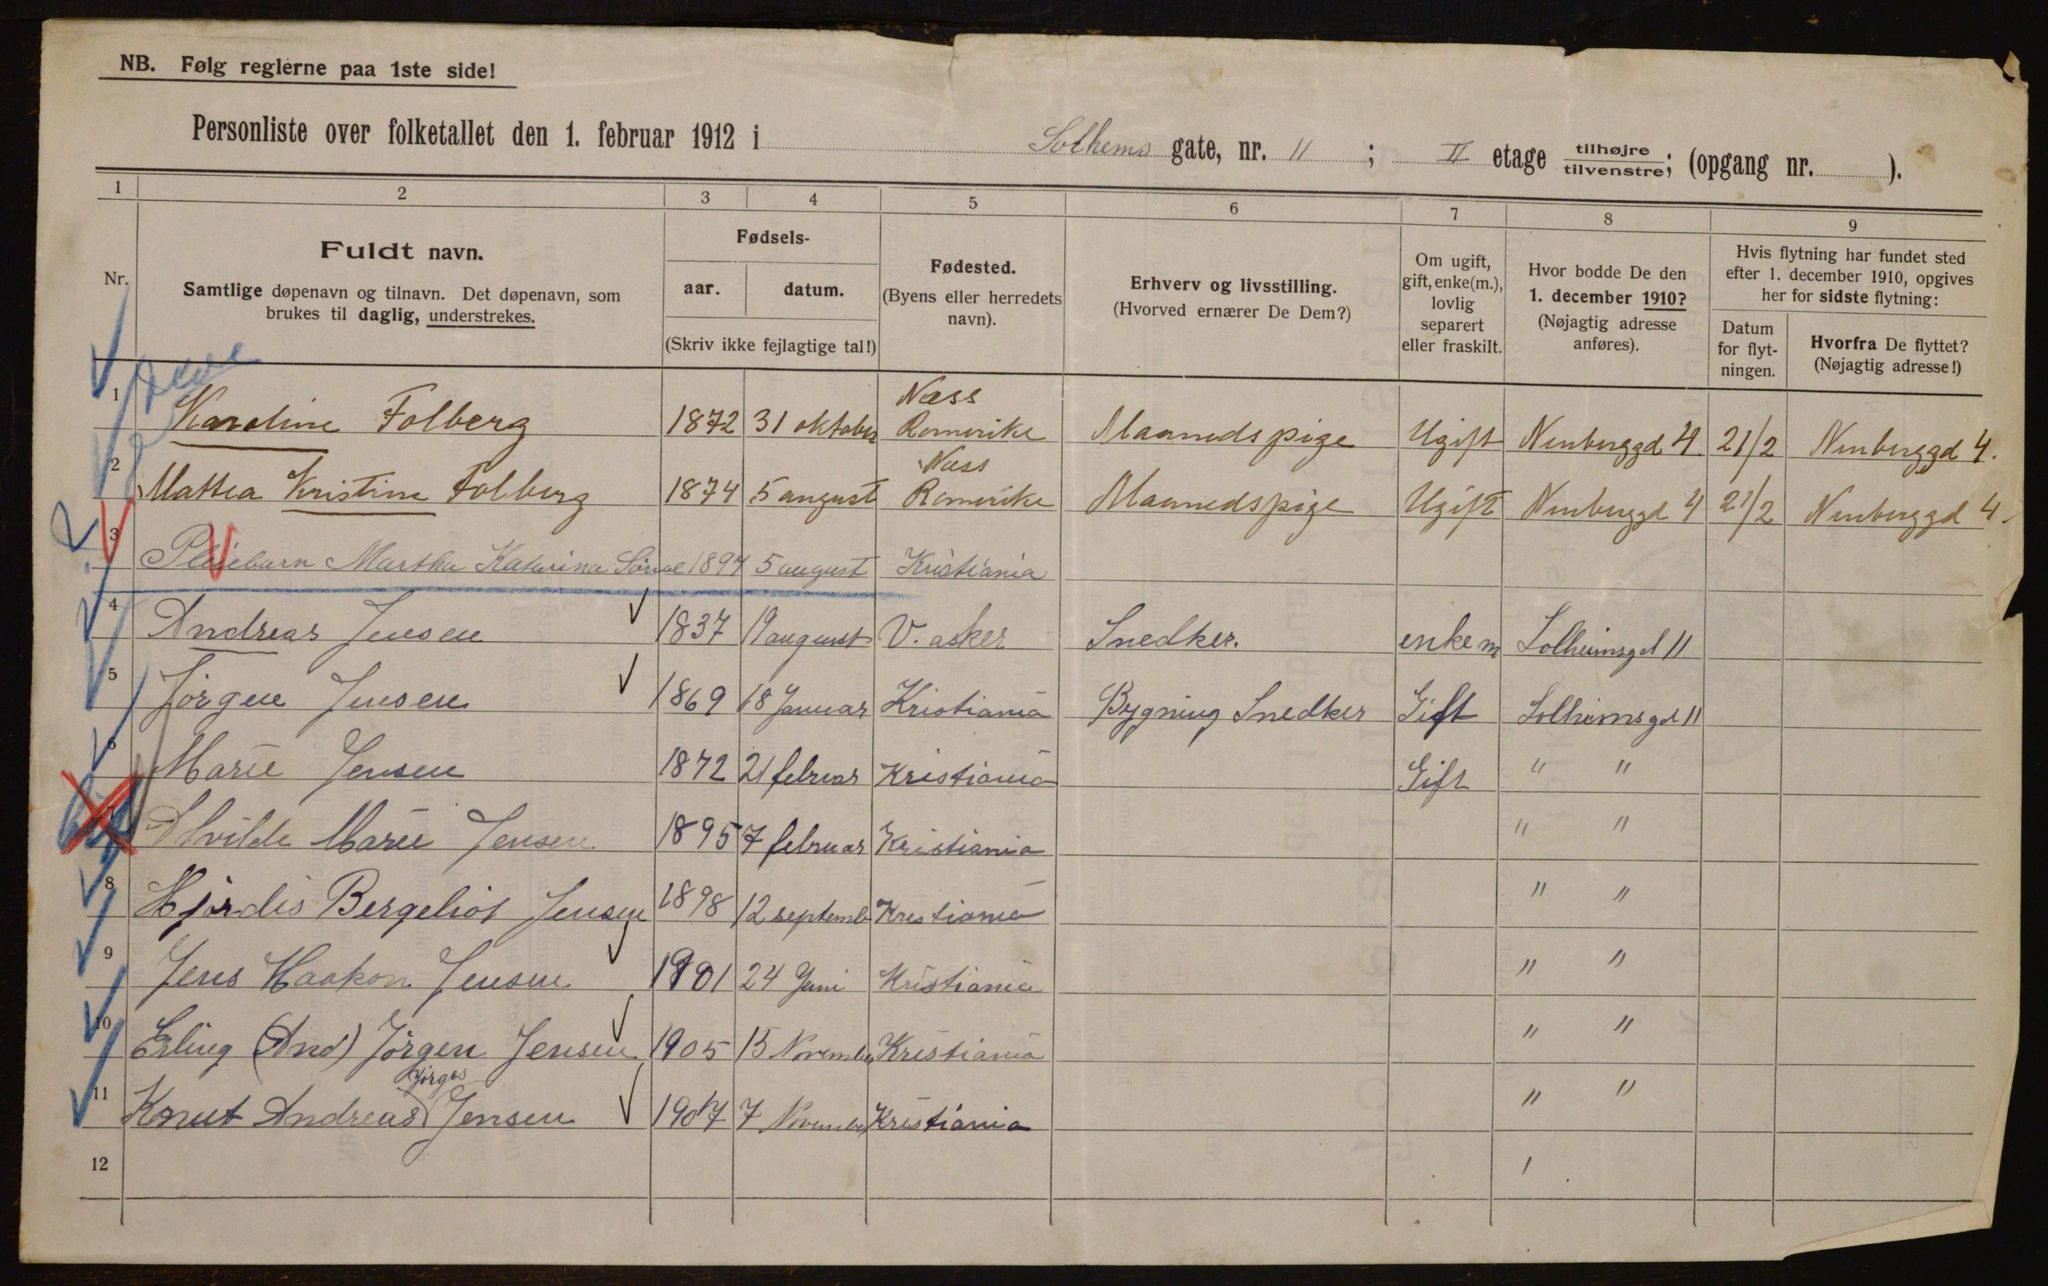 NB. Følg reglerne paa 1ste side!
Personliste over folketallet den 1. februar 1912 i Solhems gate, nr. 11 ; II etage tilhøjre/tilvenstre; (opgang nr. ).
1 2 3 4 5 6 7 8 9
Nr.
Fuldt navn.
Samtlige døpenavn og tilnavn. Det døpenavn, som
brukes til daglig, understrekes.
Fødsels-
aar. datum.
(Skriv ikke fejlagtige tal!)
Fødested.
(Byens eller herredets
navn).
Erhverv og livsstilling.
(Hvorved ernærer De Dem?)
Om ugift,
gift, enke(m.),
lovlig
separert
eller fraskilt.
Hvor bodde De den
1. december 1910?
(Nøjagtig adresse
anføres).
Hvis flytning har fundet sted
efter 1. december 1910, opgives
her for sidste flytning:
Datum
for flyt-
ningen.
Hvorfra De flyttet?
(Nøjagtig adresse!)
1 Karoline Folberg 1872 31 oktober Næss Romerike Maanedspige Ugift Nenberggd 4. 21/2 Nenberggd 4.
2 Mathea Kristine Folberg 1874 5 august Næss Romerike Maanedspige Ugift Nenberggd 4 21/2 Nenberggd 4.
3 Pleiebarn Martha Katarina 1897 5 august Kristiania
4 Andreas Jensen 1837 19 august V. asker Snedker. enkem Solheimsgd 11
5 Jørgen Jensen 1869 18 Januar Kristiania Bygning Snedker Gift Solheimsgd 11
6 Marie Jensen 1872 21 februar Kristiania Gift " "
7 Alvilde Marie Jensen 1895 7 februar Kristiania " "
8 Hjørdis Bergeliot Jensen 1898 12 septemb Kristiania " "
9 Jens Haakon Jensen 1901 24 Juni Kristiania " "
10 Erling (And) Jørgen Jensen 1905 15 November Kristiania " "
11 Knut Andreas (Jørges) Jensen 1907 7 November Kristiania " "
12